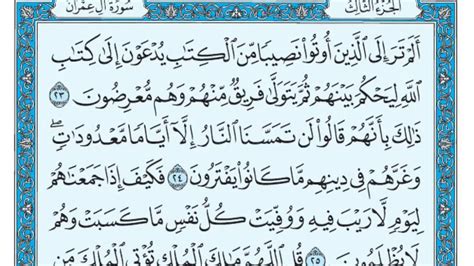 الجزء الثالث سورة آل عمران
أَلَمْ تَرَ إِلَى ٱلَّذِينَ أُوتُوا۟ نَصِيبًا مِّنَ ٱلْكِتَٰبِ يُدْعَوْنَ إِلَىٰ كِتَٰبِ
ٱللَّهِ لِيَحْكُمَ بَيْنَهُمْ ثُمَّ يَتَوَلَّىٰ فَرِيقٌ مِّنْهُمْ وَهُم مُّعْرِضُونَ ٢٣
ذَٰلِكَ بِأَنَّهُمْ قَالُوا۟ لَن تَمَسَّنَا ٱلنَّارُ إِلَّآ أَيَّامًا مَّعْدُودَٰتٍ ۖ
وَغَرَّهُمْ فِى دِينِهِم مَّا كَانُوا۟ يَفْتَرُونَ ٢٤ فَكَيْفَ إِذَا جَمَعْنَٰهُمْ
لِيَوْمٍ لَّا رَيْبَ فِيهِ وَوُفِّيَتْ كُلُّ نَفْسٍ مَّا كَسَبَتْ وَهُمْ
لَا يُظْلَمُونَ ٢٥ قُلِ ٱللَّهُمَّ مَٰلِكَ ٱلْمُلْكِ تُؤْتِى ٱلْمُلْكَ مَن